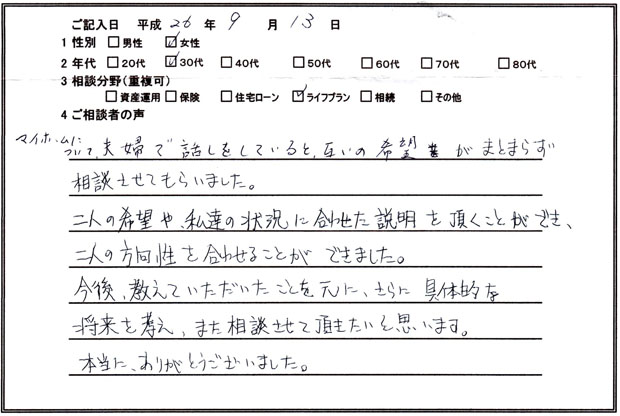 ご記入日 平成 26 年 9 月 13 日
1 性別 □男性 ☑女性
2 年代 □20代 ☑30代 □40代 □50代 □60代 □70代 □80代
3 相談分野(重複可)
□資産運用 □保険 □住宅ローン ☑ライフプラン □相続 □その他
4 ご相談者の声
マイホームに
ついて、夫婦で話しをしていると、互いの希望がまとまらず
相談させてもらいました。
二人の希望や、私達の状況に合わせた説明を頂くことができ、
二人の方向性を合わせることができました。
今後、教えていただいたことを元に、さらに具体的な
将来を考え、また相談させて頂きたいと思います。
本当に、ありがとうございました。